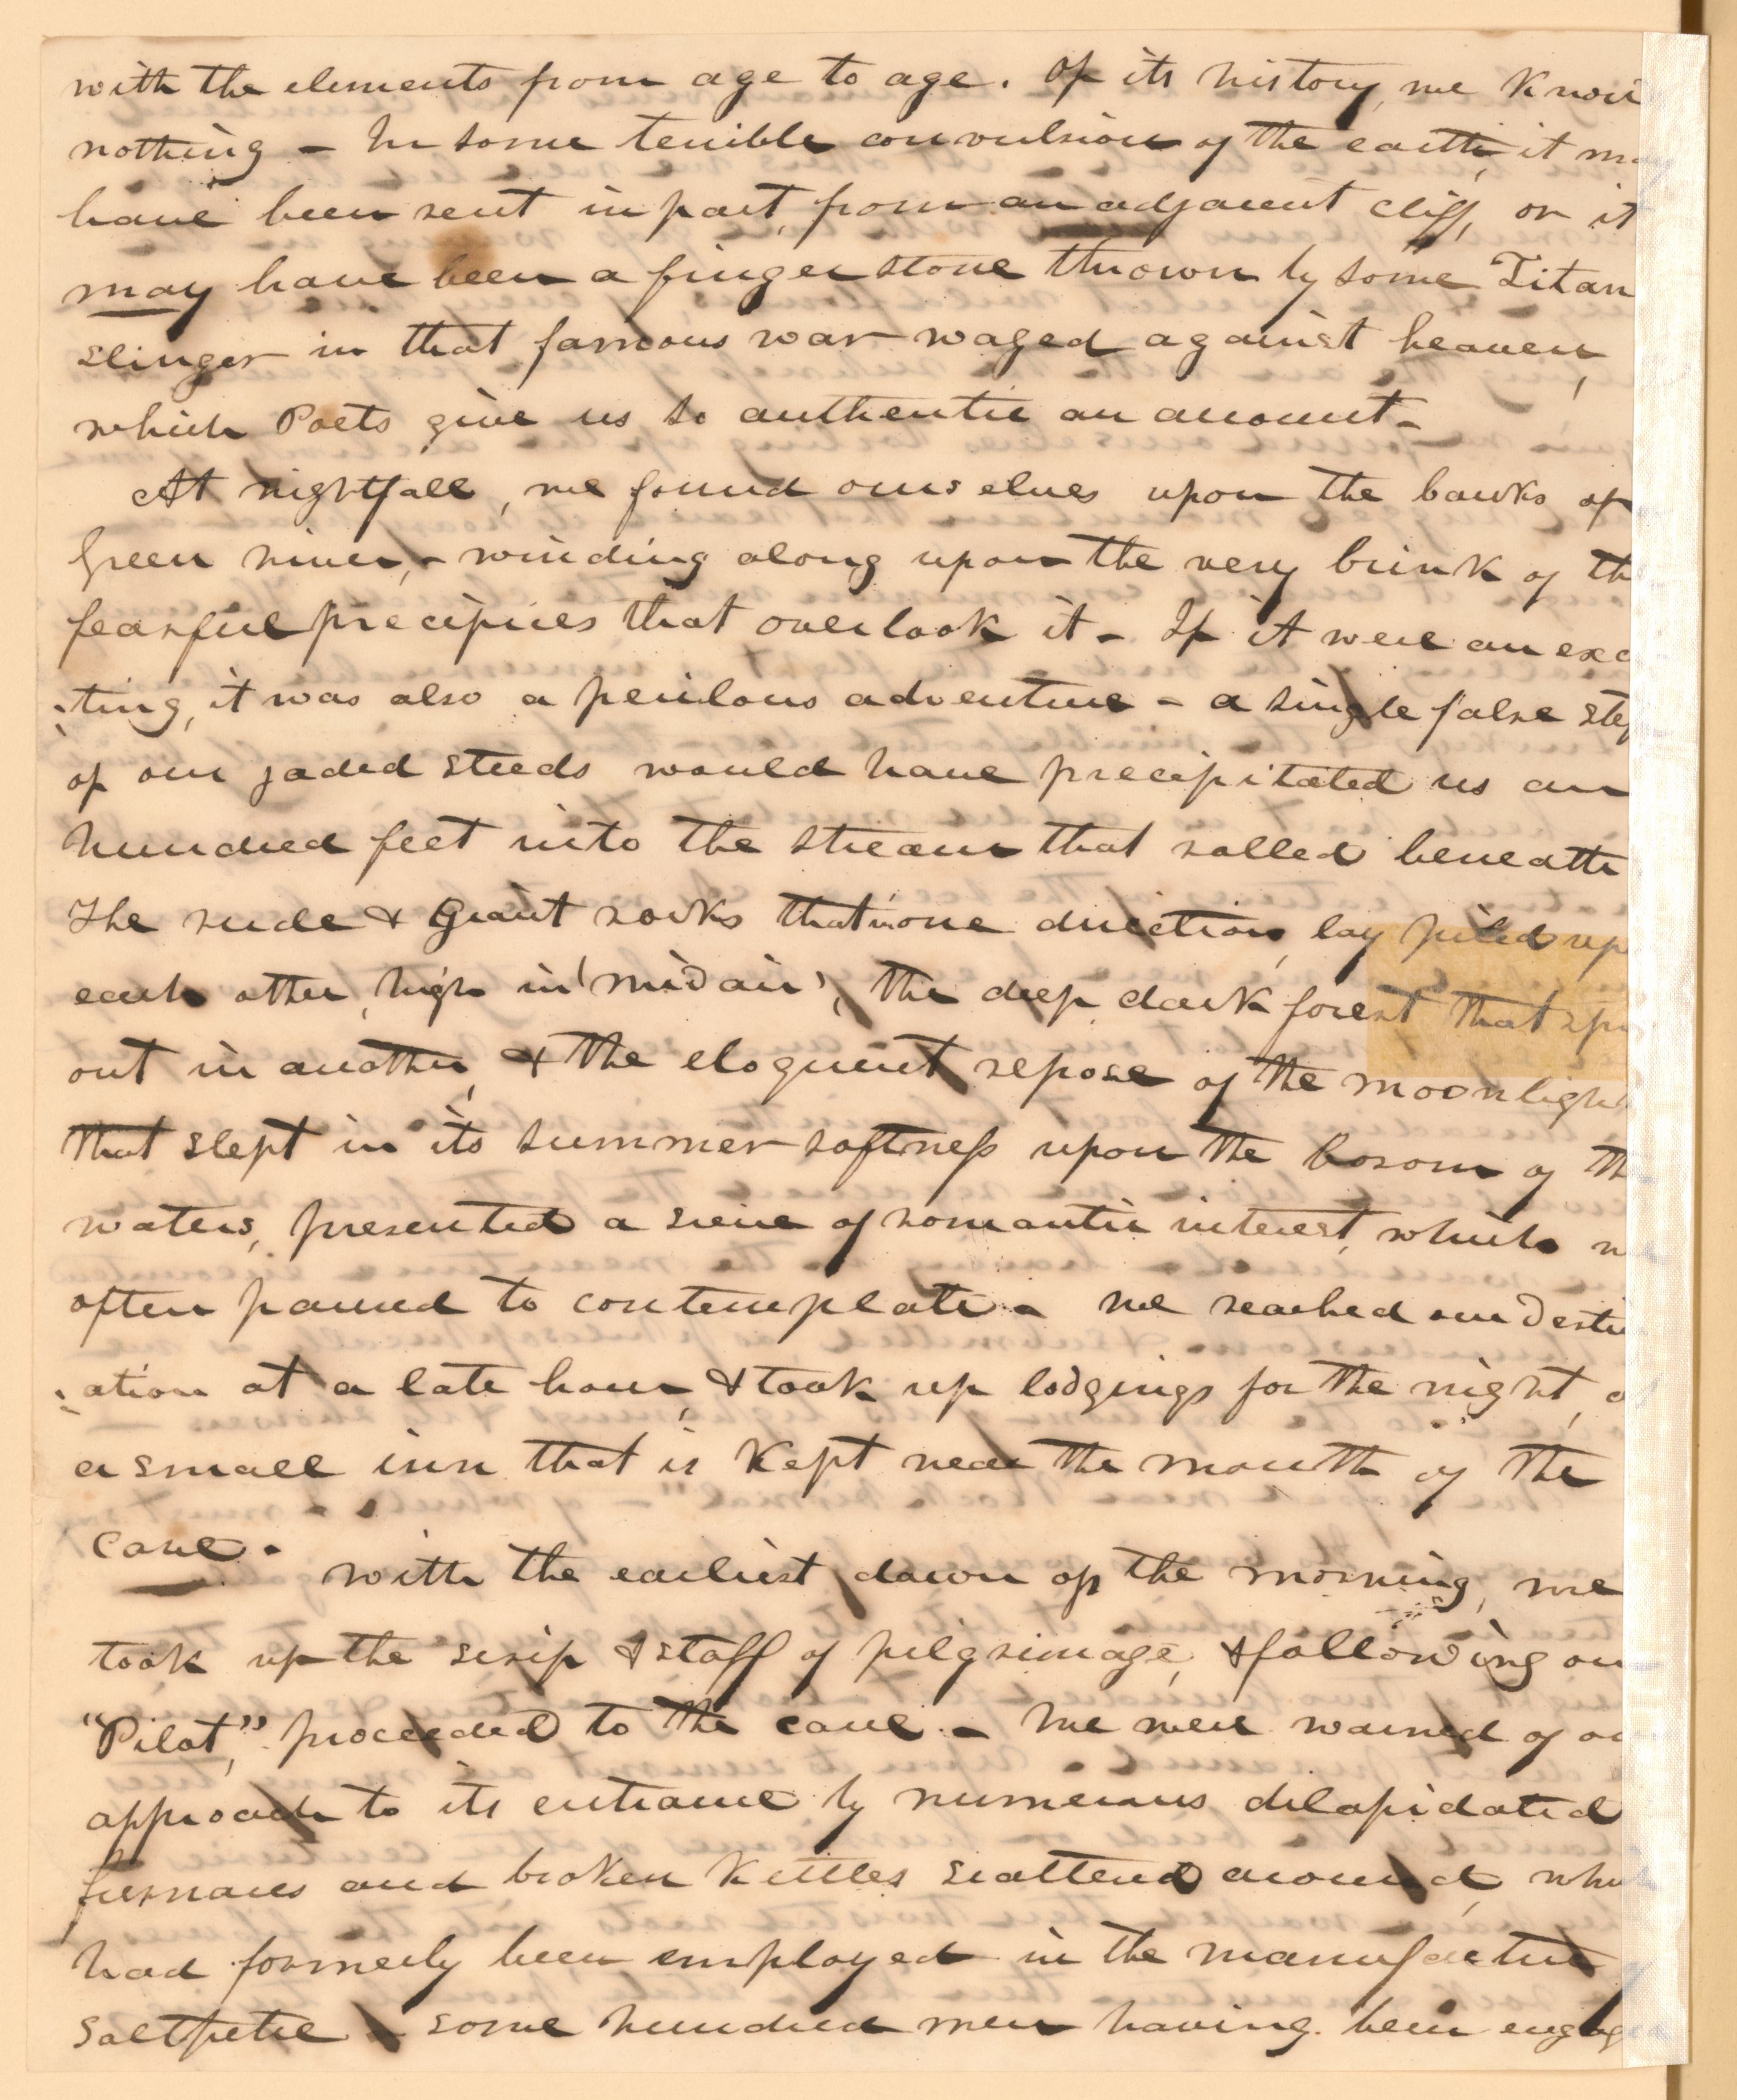 with the elements from age to age. Of its history, we know
nothing - In some terrible convulsion of the earth, it may
have been sent in part, from an adjacent cliff, or it
may have been a finger stone thrown by some Titan
slinger in that famous war waged against heaven,
which Poets give us so authentic an account -
At nightfall, we found ourselves upon the banks of
Green river, - winding along upon the very brink of th
fearful precipices that overlook it - If it were an exc
-ting, it was also a perilous adventure - a single false step
of our jaded steeds would have precipitated us an
hundred feet into the stream that rolled beneath
The rude & Giant rocks that in one direction, lay piled up
each other, high in 'mid air', the deep dark forest that spr
out in another, & the eloquent repose of the moonlight
that slept in its summer softness upon the bosom of th
waters, presented a scene of romantic interest, which we
often paused to contemplate - we reached our destin
-ation at a late hour, & took up lodgings for the night, a
a small inn that is kept near the mouth of the
cave -
with the earliest dawn of the morning, we
took up the scrip & staff of pilgrimage, & following ou
"Pilot," proceeded to the cave. - We were warned of ou
approach to its entrance by numerous dilapidated
furnaces and broken kettles scattered around, which
had formerly been employed in the manufacture
saltpetre - some hundred men having been engaged